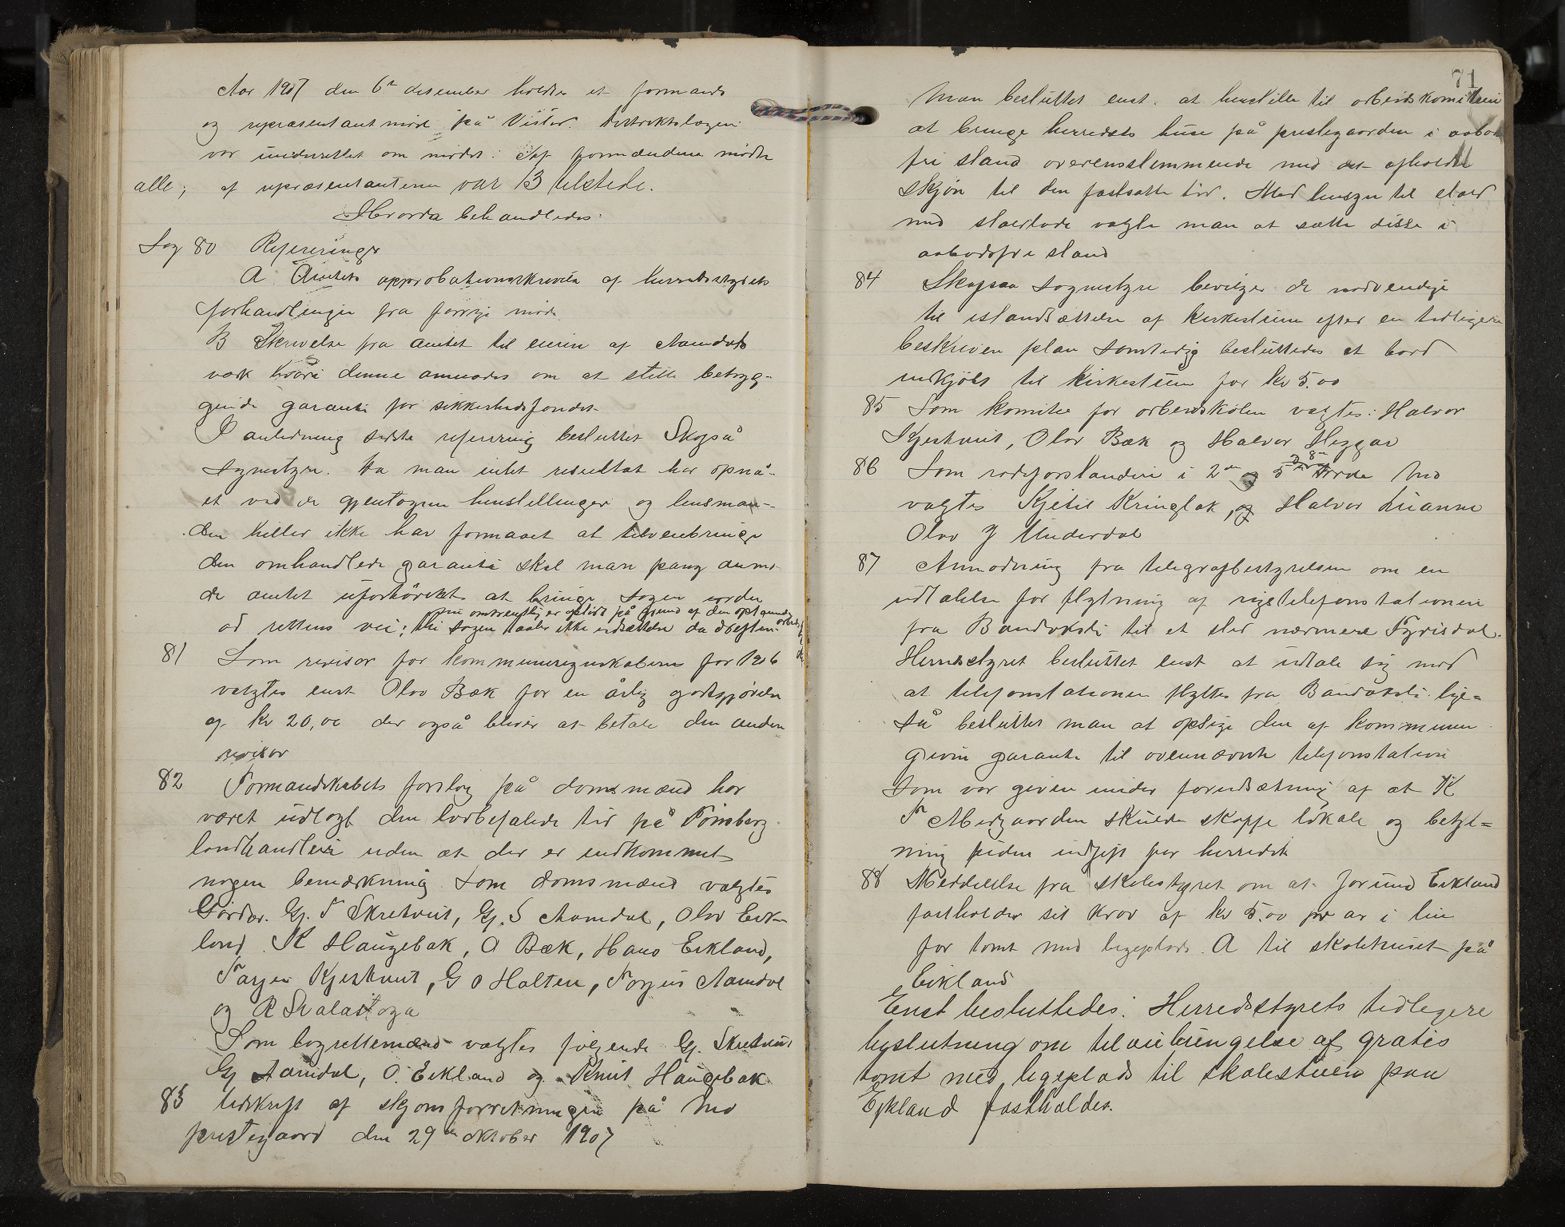 Aar 1907 den 6te desember holdtes et formands
og repræsentantmøde på Vistad. Distriktslægen
var underrettet om mødet. Af formændene mødte
alle, af repræsentanterne var 13 tilstede.
Hvorda behandledes:
Sag 80 Refereringer
A Amtets approbationsskrivelse af herredsstyrets
forhandlinger fra forrige møde
B Skrivelse fra amtet til eieren af Aamdals
værk hvori denne anmodes om at stille betryg-
gende garanti for sikkerhedsfondet
I anledning sidste referering besluttet Skafså
sognestyre. Da man intet resultat har opnå-
et ved de gjentagne henstillinger og lensman-
den heller ikke har formaaet at tilveiebringe
den omhandlede garanti skal man paany anmo-
de amtet ufortøvet at bringe sagen inden
ad rettens vei; thi sagen taaler ikke udsættelse da driften
omtrentlig er ophørt på grund af den
81 Som revisor for kommuneregnskaberne for 1906
valgtes enst Olav Bæk for en årlig godtgjørelse
af kr 20,00 der også bliver at betale den anden
revisor
82 Formandskabets forslag på domsmænd har
været udlagt den lovbefalede tid på Tønsberg
landhandleri uden at der er indkommet
nogen bemærkning Som domsmænd valgtes
Gj. T Skretveit, Gj. S Aamdal, Olav Eik-
land K Haugebak, O Bæk, Hans Eikland,
Tarjei Kjerkvut, G O Holten, Torjus Aamdal
og R Svalastoga
Som lagrettemænd valgtes følgende Gj. Skretveit
Gj Aamdal, O. Eikland og Knut Haugebak
83 Udskrift af skjønsforretningen på Mo
prestegaard den 29de oktober 1907
71
Man besluttet enst. at henstille til arbeidskomiteen
at bringe herredets huse på prestegaarden i aabods-
fri stand overensstemmende med det afholdte
skjøn til den fastsatte tid. Med hensyn til stald
med staldlade valgte man at sætte disse i
aabodsfri stand
84 Skafsaa sognestyre bevilger de nødvendige
til istandsættelse af kirkestuen efter en tidligere
beskreven plan samtidig besluttedes et bord
indkjøbt til kirkestuen for kr 5.00
85 Som komite for arbeidsskolen valgtes: Halvor
Kjerkvut, Olav Bæk og Halvor Heggav
86 Som rodeforstandere i 2den og 5 rode Mo
valgtes Kjetil Kringlak, og Halvor Lianne
Olav J Underdal
87 Anmodning fra telegrafbestyrelsen om en
udtalelse for flytning af rigstelefonstationen
fra Bandaksli til et sted nærmere Fyrisdal.
Herredsstyret besluttet enst at udtale sig mod
at telefonstationen flyttes fra Bandaksli lige-
så besluttet man at opsige den af kommunen
given garanti til ovennævnte telefonstation
som var given under forudsætning af at K
T Midgaarden skulde skaffe lokale og betje-
ning uden udgift for herredet
88 Meddelelse fra skolestyret om at Jorund Eikland
fastholder sit krav af kr 5.00 pr aar i leie
for tomt med legeplads A til skolehuset på
Eikland
Enst besluttedes: Herredsstyrets tidligere
beslutning om tilveiebringelse af gratis
tomt med legeplads til skolestuen paa
Eikland fastholdes.